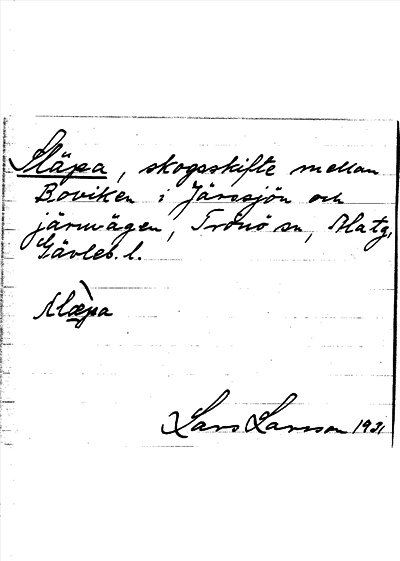 Släpa, skogsskifte mellan
Boviken i Järssjön och
järnvägen, Trönö sn, Ala tg,
Gävleb. l.
slæ̀pa
Lars Larsson 1921